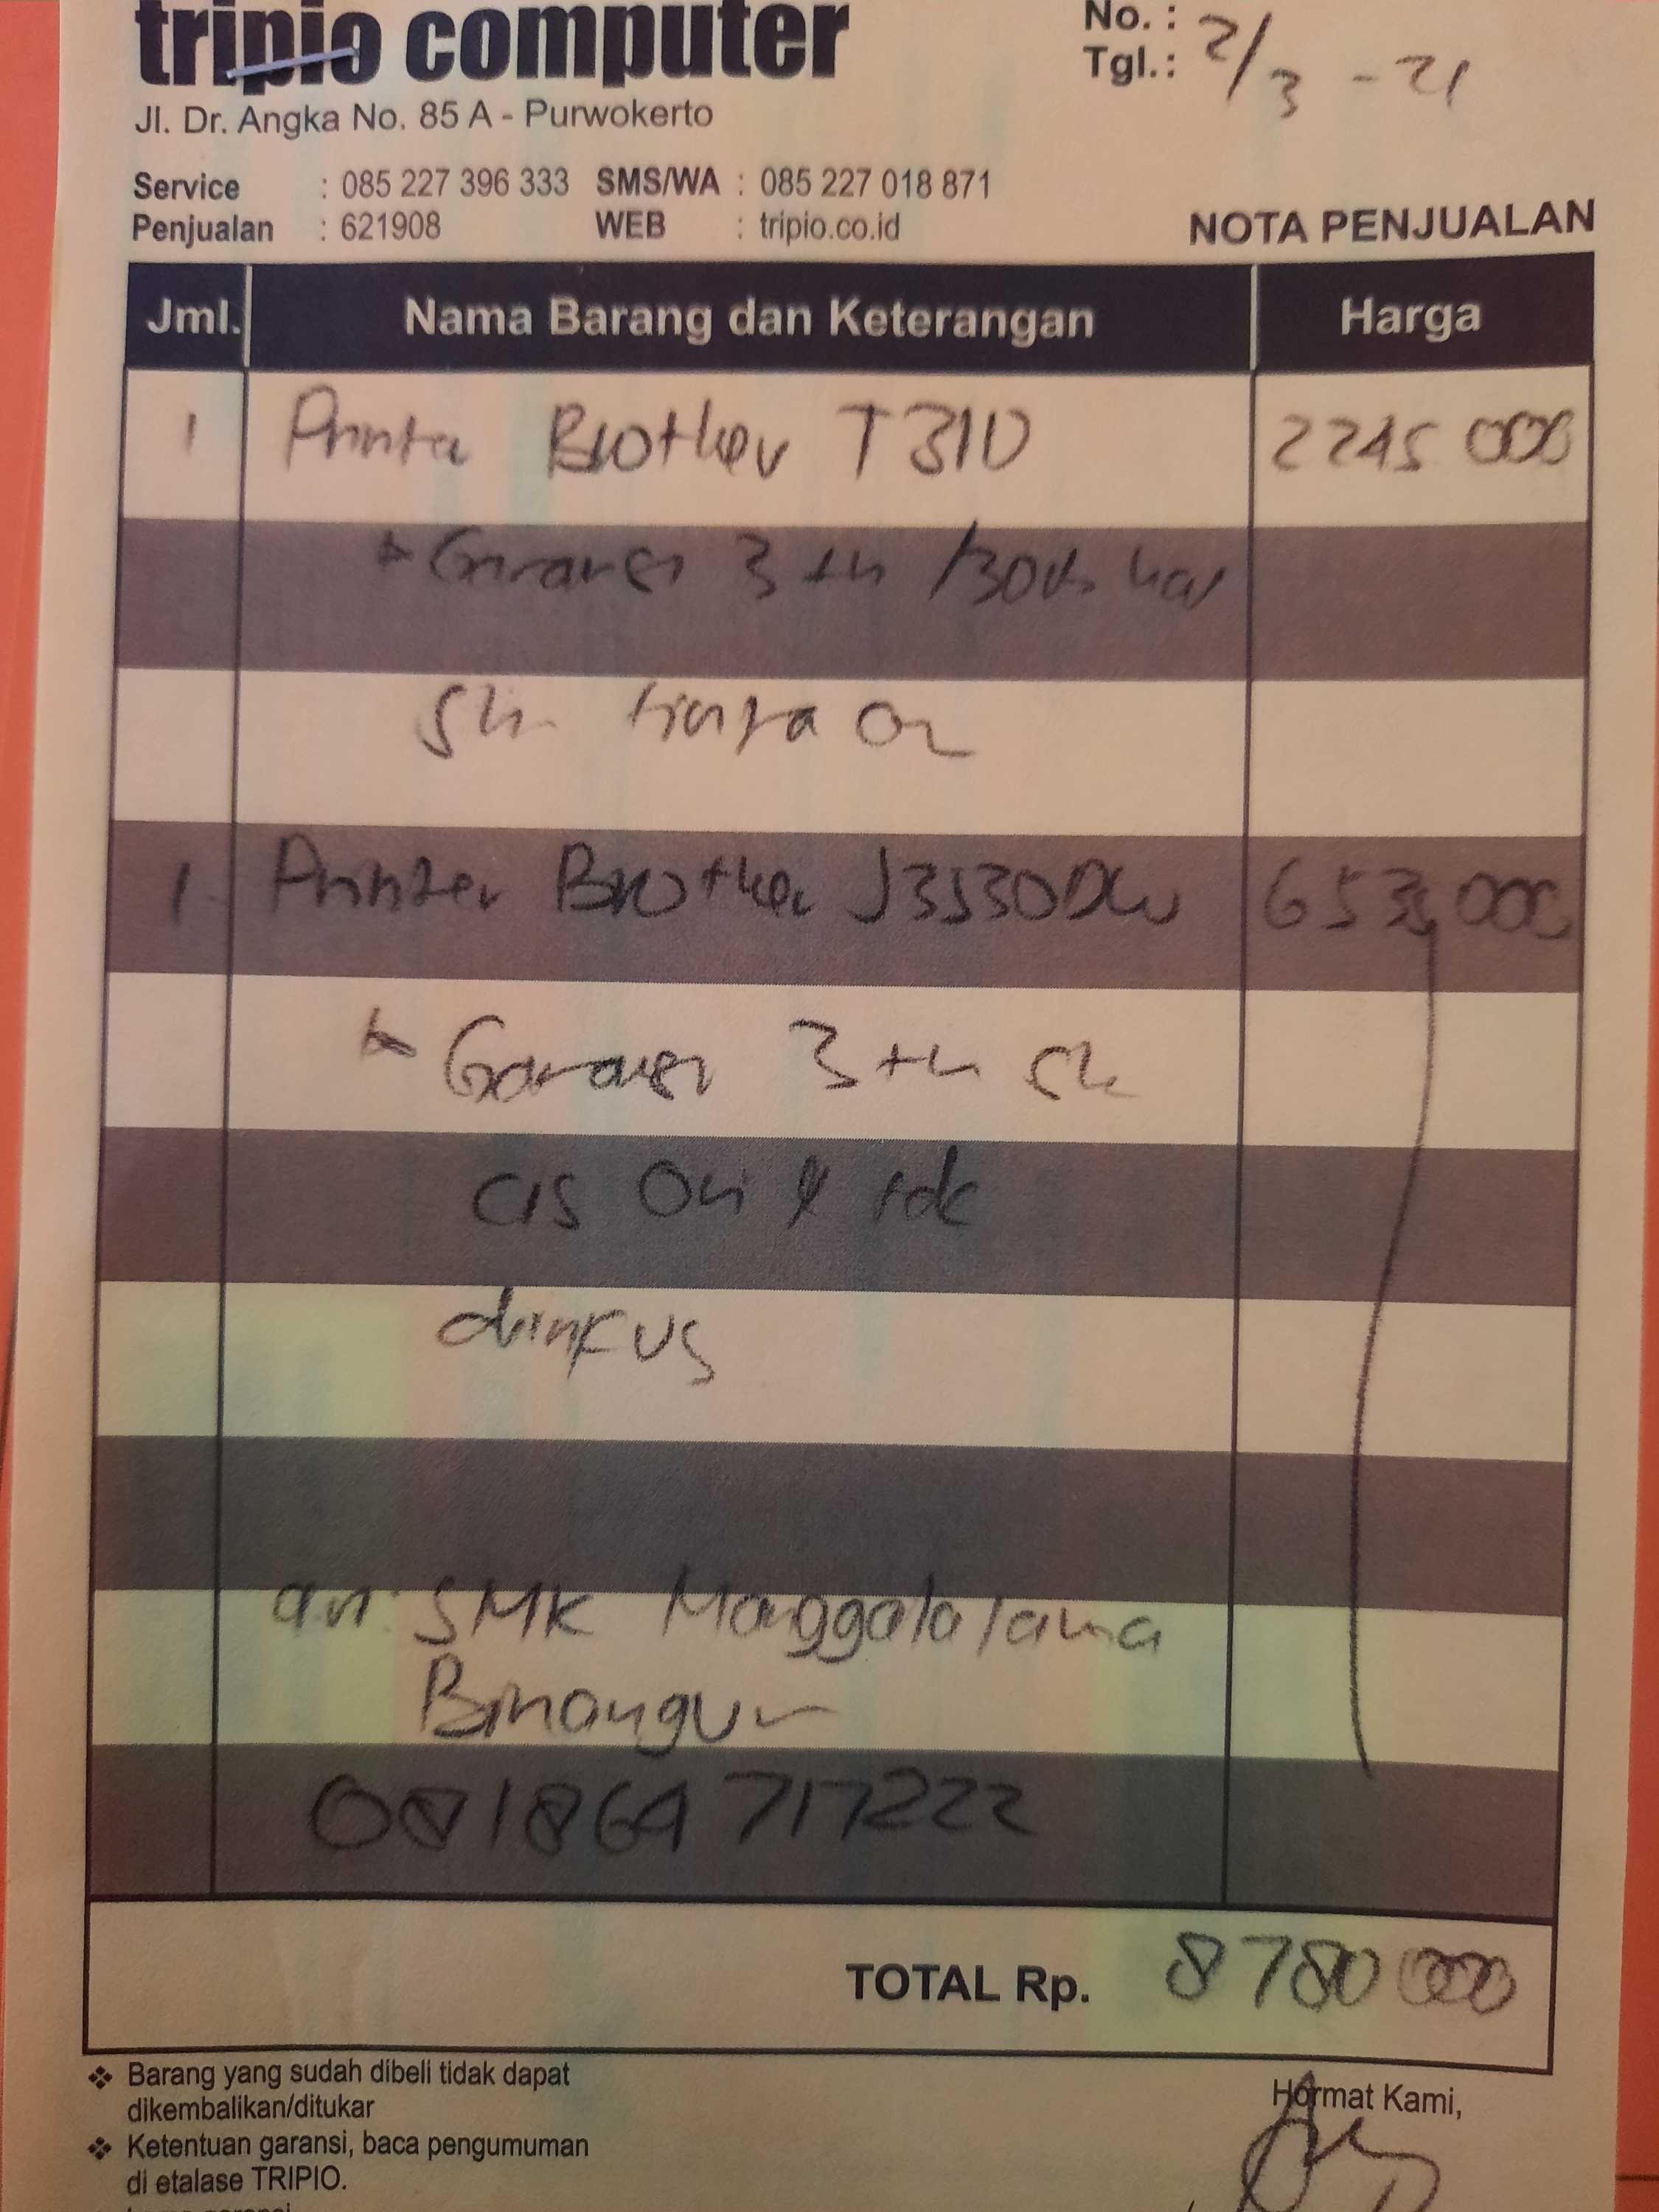 tripio computer
Jl. Dr. Angka No. 85 A - Purwokerto
No. :
Tgl. : 2/3 - 21
Service : 085 227 396 333 SMS/WA : 085 227 018 871
Penjualan : 621908 WEB : tripio.co.id
NOTA PENJUALAN
Jml. Nama Barang dan Keterangan Harga
1 Printer Brother T310 2245 000
Garansi 3 th /30rb
1 Printer Brother J3530DW 6535 000
Garansi 3 th
CIS Ori &
an. SMK Manggalatama
Binangun
081864717222
TOTAL Rp. 8780 000
❖ Barang yang sudah dibeli tidak dapat
dikembalikan/ditukar
❖ Ketentuan garansi, baca pengumuman
di etalase TRIPIO.
Hormat Kami,